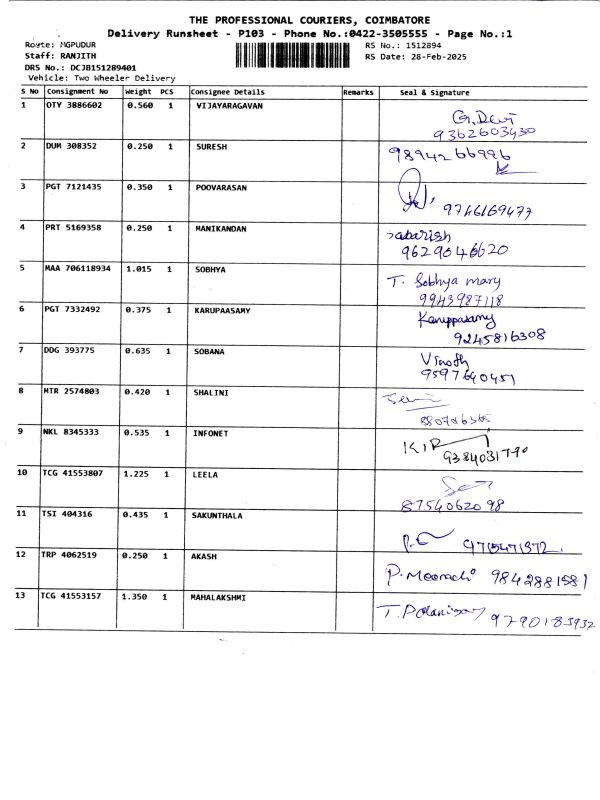 THE PROFESSIONAL COURIERS, COIMBATORE
Delivery Runsheet - P103 - Phone No.:0422-3505555 - Page No.:1
Route: MGPUDUR RS No.: 1512894
Staff: RANJITH RS Date: 28-Feb-2025
DRS No.: DCJB151289401
Vehicle: Two Wheeler Delivery
S No Consignment No Weight PCS Consignee Details Remarks Seal & Signature
1 OTY 3886602 0.560 1 VIJAYARAGAVAN
G. Devi
9362603430
2 DUM 308352 0.250 1 SURESH
9894266996
3 PGT 7121435 0.350 1 POOVARASAN
9746169477
4 PRT 5169358 0.250 1 MANIKANDAN
Sabarish
9629046620
5 MAA 706118934 1.015 1 SOBHYA
T. Sobhya mary
9943987118
6 PGT 7332492 0.375 1 KARUPAASAMY
Karuppasamy
9245816308
7 DDG 393775 0.635 1 SOBANA
Vinoth
9597640451
8 MTR 2574803 0.420 1 SHALINI
9 NKL 8345333 0.535 1 INFONET
10 TCG 41553807 1.225 1 LEELA
8754062098
11 TSI 404316 0.435 1 SAKUNTHALA
12 TRP 4062519 0.250 1 AKASH
P. Meenachi 9842881581
13 TCG 41553157 1.350 1 MAHALAKSHMI
9790183932